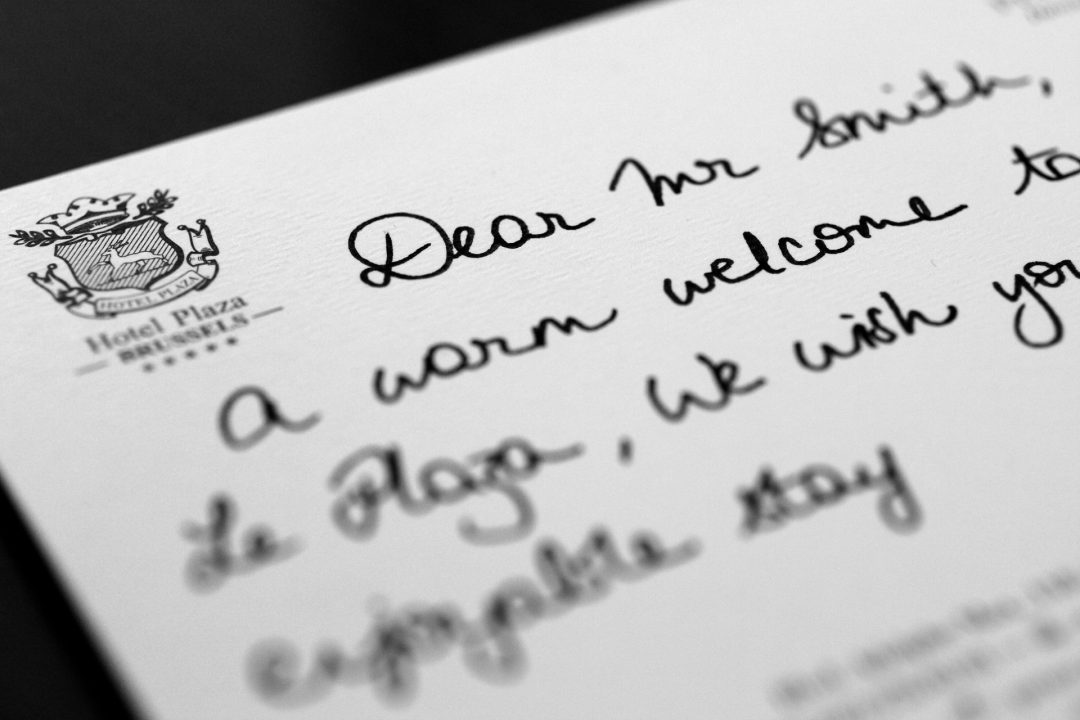 HOTEL PLAZA
Hotel Plaza
BRUSSELS
Dear Mr Smith,
a warm welcome to
Le Plaza, we wish you
enjoyable stay